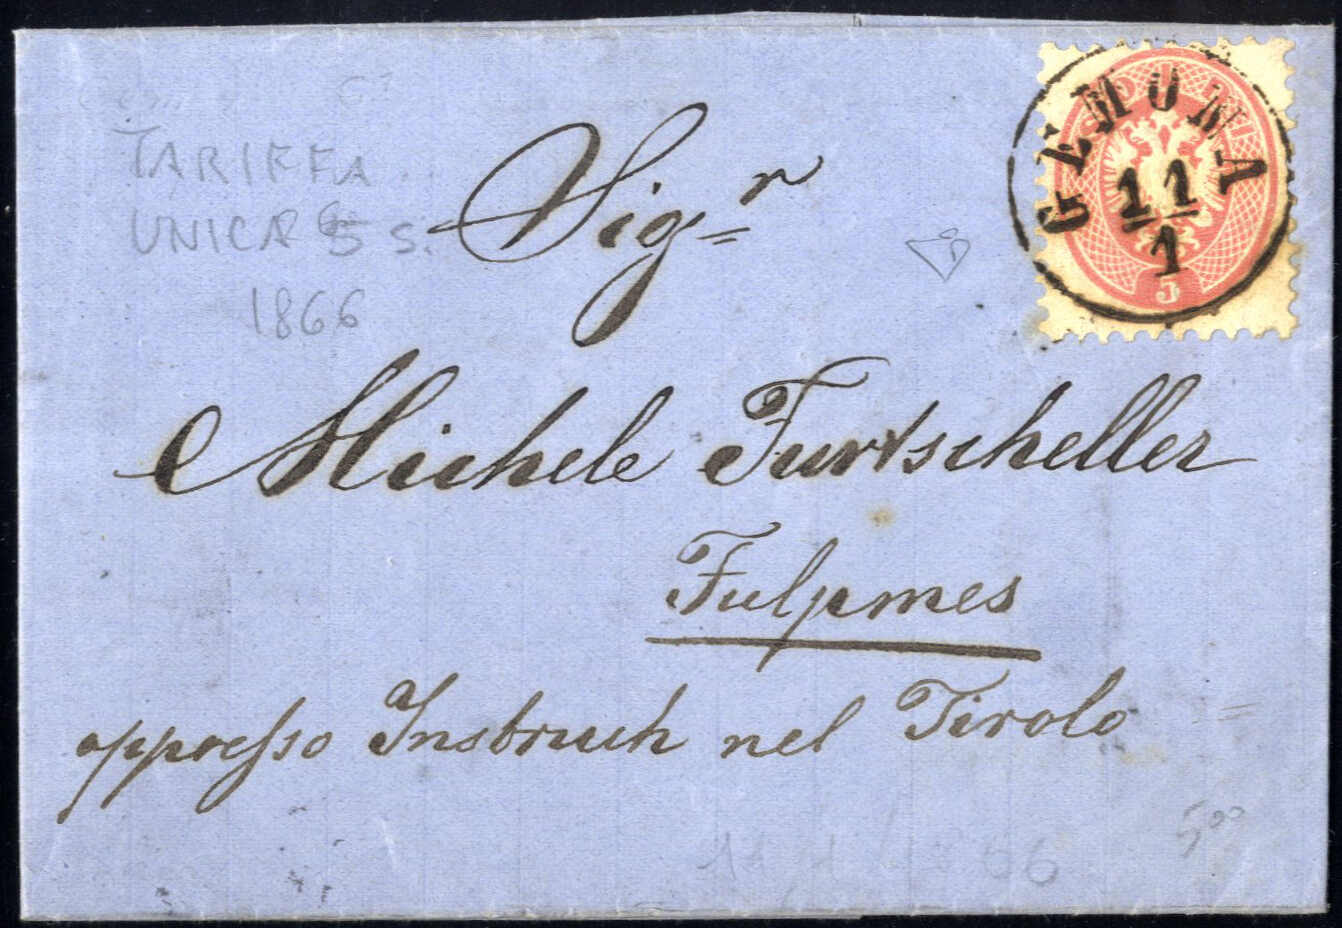 GEMONA
11
1
5
TARIFFA
UNICA 5 s.
1866
Sig.r
Michele Furtscheller
Fulpmes
appresso Insbruch nel Tirolo
5,00
11 1 66